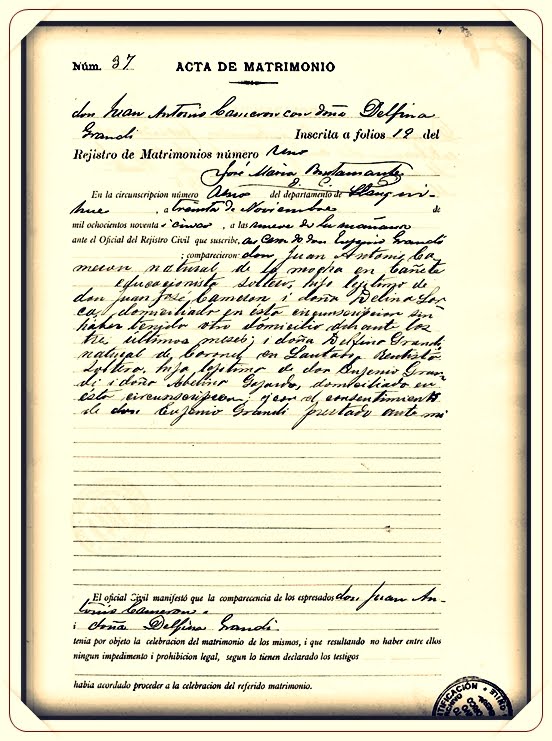 Núm. 37 ACTA DE MATRIMONIO
don Juan Antonio Cameron con doña Delfina
Grandi Inscrita a folios 19 del
Registro de Matrimonios número Uno
José Maria Bustamante
O. C.
En la circunscripcion número Uno del departamento de Llanqui-
hue, a treinta de Noviembre de
mil ochocientos noventa i cinco, a las nueve de la mañana
ante el Oficial del Registro Civil que suscribe, en casa de don Eugenio Grandi
; comparecieron don Juan Antonio Ca-
meron natural de la mocha en Cañete
educacionista soltero, hijo lejitimo de
don Juan José Cameron i doña Delina Lor-
ca, domiciliado en esta circunscripcion sin
haber tenido otro domicilio durante los
tres últimos meses; i doña Delfina Grandi,
natural de Coronel en Lautaro
soltera, hija lejitima de don Eugenio Gran-
di i doña Abelina Gajardo, domiciliada en
esta circunscripcion; i con el consentimiento
de don Eujenio Grandi prestado ante mi
El oficial Civil manifestó que la comparecencia de los espresados don Juan An-
tonio Cameron
i doña Delfina Grandi
tenia por objeto la celebracion del matrimonio de los mismos, i que resultando no haber entre ellos
ningun impedimento i prohibicion legal, segun lo tienen declarado los testigos
habia acordado proceder a la celebracion del referido matrimonio.